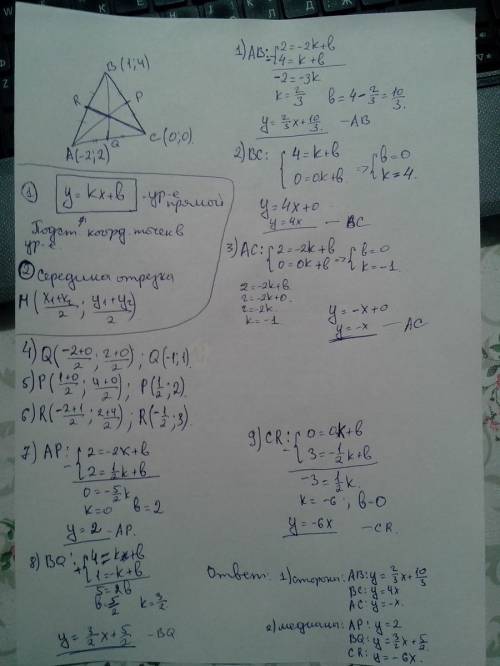 B(1;4)
R P
A(-2;2) Q C(0;0)
① y = kx+b - ур-е прямой
Подст. коорд. точек в ур-е
② Середина отрезка
M(x₁+x₂/2 ; y₁+y₂/2)
1) AB: { 2=-2k+b
4=k+b
-2=-3k
k=2/3 b=4-2/3=10/3.
y=2/3x+10/3. -AB
2) BC: { 4=k+b
0=0k+b => { b=0
k=4.
y=4x+0
y=4x - BC
3) AC: { 2=-2k+b
0=0k+b => { b=0
k=-1.
2=-2k+b
2=-2k+0.
2=-2k.
k=-1
y=-x+0
y=-x - AC
4) Q(-2+0/2 ; 2+0/2) ; Q(-1;1).
5) P(1+0/2 ; 4+0/2) ; P(1/2 ; 2).
6) R(-2+1/2 ; 2+4/2) ; R(-1/2 ; 3).
7) AP: - { 2=-2k+b
2=1/2k+b
0=-5/2k
k=0 b=2
y=2 - AP.
8) BQ: + { 4=k+b
1=-k+b
5=2b
b=5/2 k=3/2
y=3/2x+5/2 - BQ
9) CR: - { 0=0k+b
3=-1/2k+b
-3=1/2k.
k=-6 ; b=0
y=-6x - CR.
Ответ: 1) стороны: AB: y=2/3x+10/3
BC: y=4x
AC: y=-x.
2) медианы: AP: y=2
BQ: y=3/2x+5/2.
CR: y=-6x.